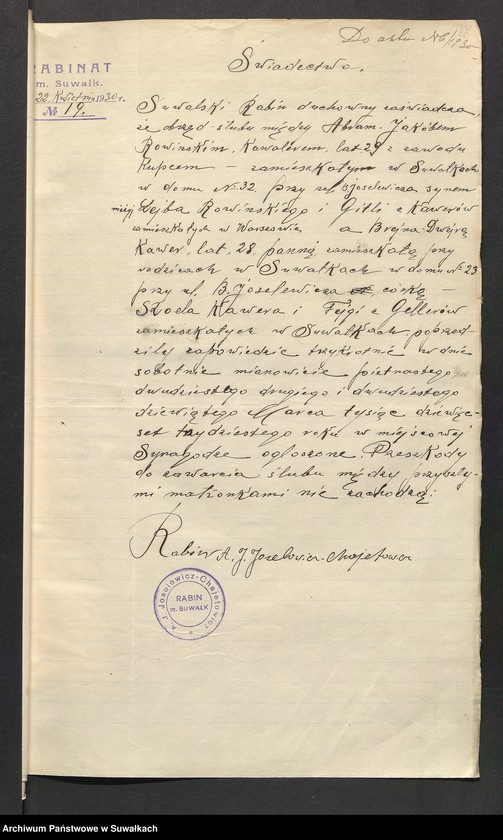 Do aktu № 6/1930
RABINAT
m. Suwałk.
22. Kwietnia 1930 r.
№ 19.
Świadectwo.
Suwalski Rabin duchowny zaświadcza,
że obrzęd ślubu między Abram-Jakóbem
Rowińskim, Kawalerem, lat 29 z zawodu
Kupcem – zamieszkałym w Suwałkach
w domu № 32 przy ul. B. Joselewicza synem
Lejba Rowińskiego i Gitli z Kawerów
zamieszkałych w Warszawie a Brejna-Dwejrą
Kawer, lat 28, panną, zamieszkałą przy
rodzicach w Suwałkach w domu № 23
przy ul. B. Joselewicza córką –
Szoela Kawera i Fejgi z Gellerów
zamieszkałych w Suwałkach poprzed-
ziły zapowiedzie trzykrotnie w dnie
sobotnie mianowicie piętnastego
dwudziestego drugiego i dwudziestego
dziewiątego Marca tysiąc dziewięć-
set trzydziestego roku w miejscowej
Synagodze ogłoszone. Przeszkody
do zawarcia ślubu między przyszły-
mi małżonkami nie zachodzą.
Rabin A. J. Joselowicz-Chajetowicz
A. J. Joselowicz-Chajetowicz
RABIN
m. SUWAŁK
Archiwum Państwowe w Suwałkach